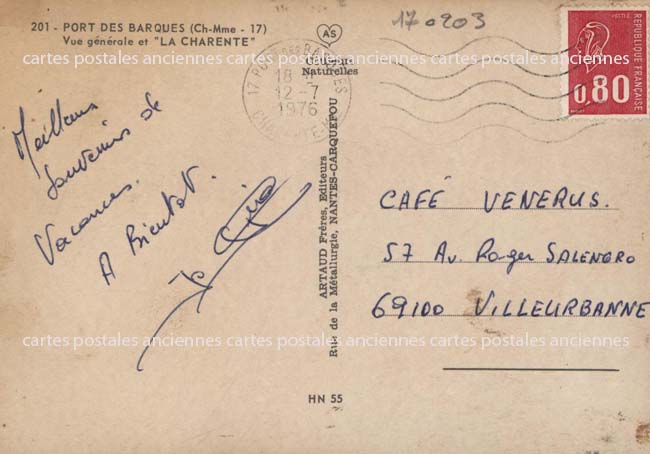 201 - PORT DES BARQUES (Ch-Mme - 17)
Vue générale et "LA CHARENTE"
AS
Couleurs
Naturelles
17 PORT DES BARQUES
18 H
12-7
1976
CHARENTE-MME
170203
POSTES
RÉPUBLIQUE FRANÇAISE
0,80
Meilleurs
Souvenirs de
Vacances.
A Bientot.
ARTAUD Frères, Editeurs
Rue de la Métallurgie, NANTES-CARQUEFOU
CAFÉ VENERUS.
57 Av. Roger SALENGRO
69100 VILLEURBANNE
cartes postales anciennes cartes postales anciennes cartes postales anciennes
HN 55